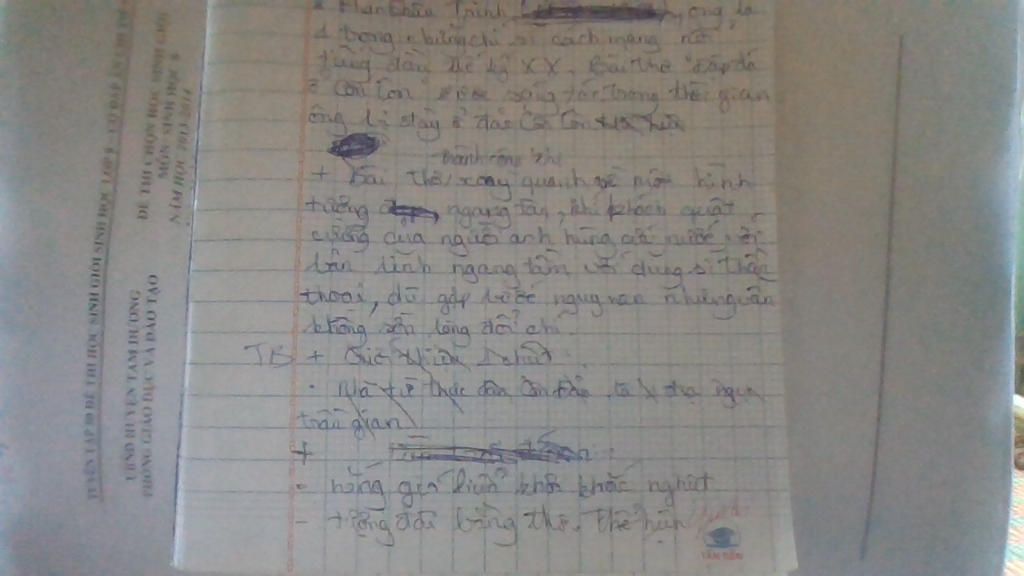 Phan Châu Trinh, ông là
1 trong những chí sĩ cách mạng nổi
tiếng đầu thế kỷ XX. Bài thơ "Đập đá
ở Côn Lôn" được sáng tác trong thời gian
ông bị đày ở đảo Côn Lôn
thành công khi
+ Bài thơ xoay quanh về một hình
tượng ngang tàn, khí phách quật
cường của người anh hùng cứu nước với
bản lĩnh ngang tầm với dũng sĩ thần
thoại, dù gặp bước nguy nan nhưng vẫn
không sờn lòng đổi chí.
TB +
. Nhà tù thực dân Côn Đảo, là địa ngục
trần gian
+
- nắng gió biển khơi khắc nghiệt
- tượng đài bằng thơ. Thể hiện
TUYỂN TẬP 50 ĐỀ THI HỌC SINH GIỎI SINH HỌC LỚP 8 - CÓ ĐÁP ÁN
UBND HUYỆN TAM DƯƠNG
PHÒNG GIÁO DỤC VÀ ĐÀO TẠO
ĐỀ THI CHỌN HỌC SINH GIỎI
MÔN SINH HỌC 8
NĂM HỌC 2013-2014